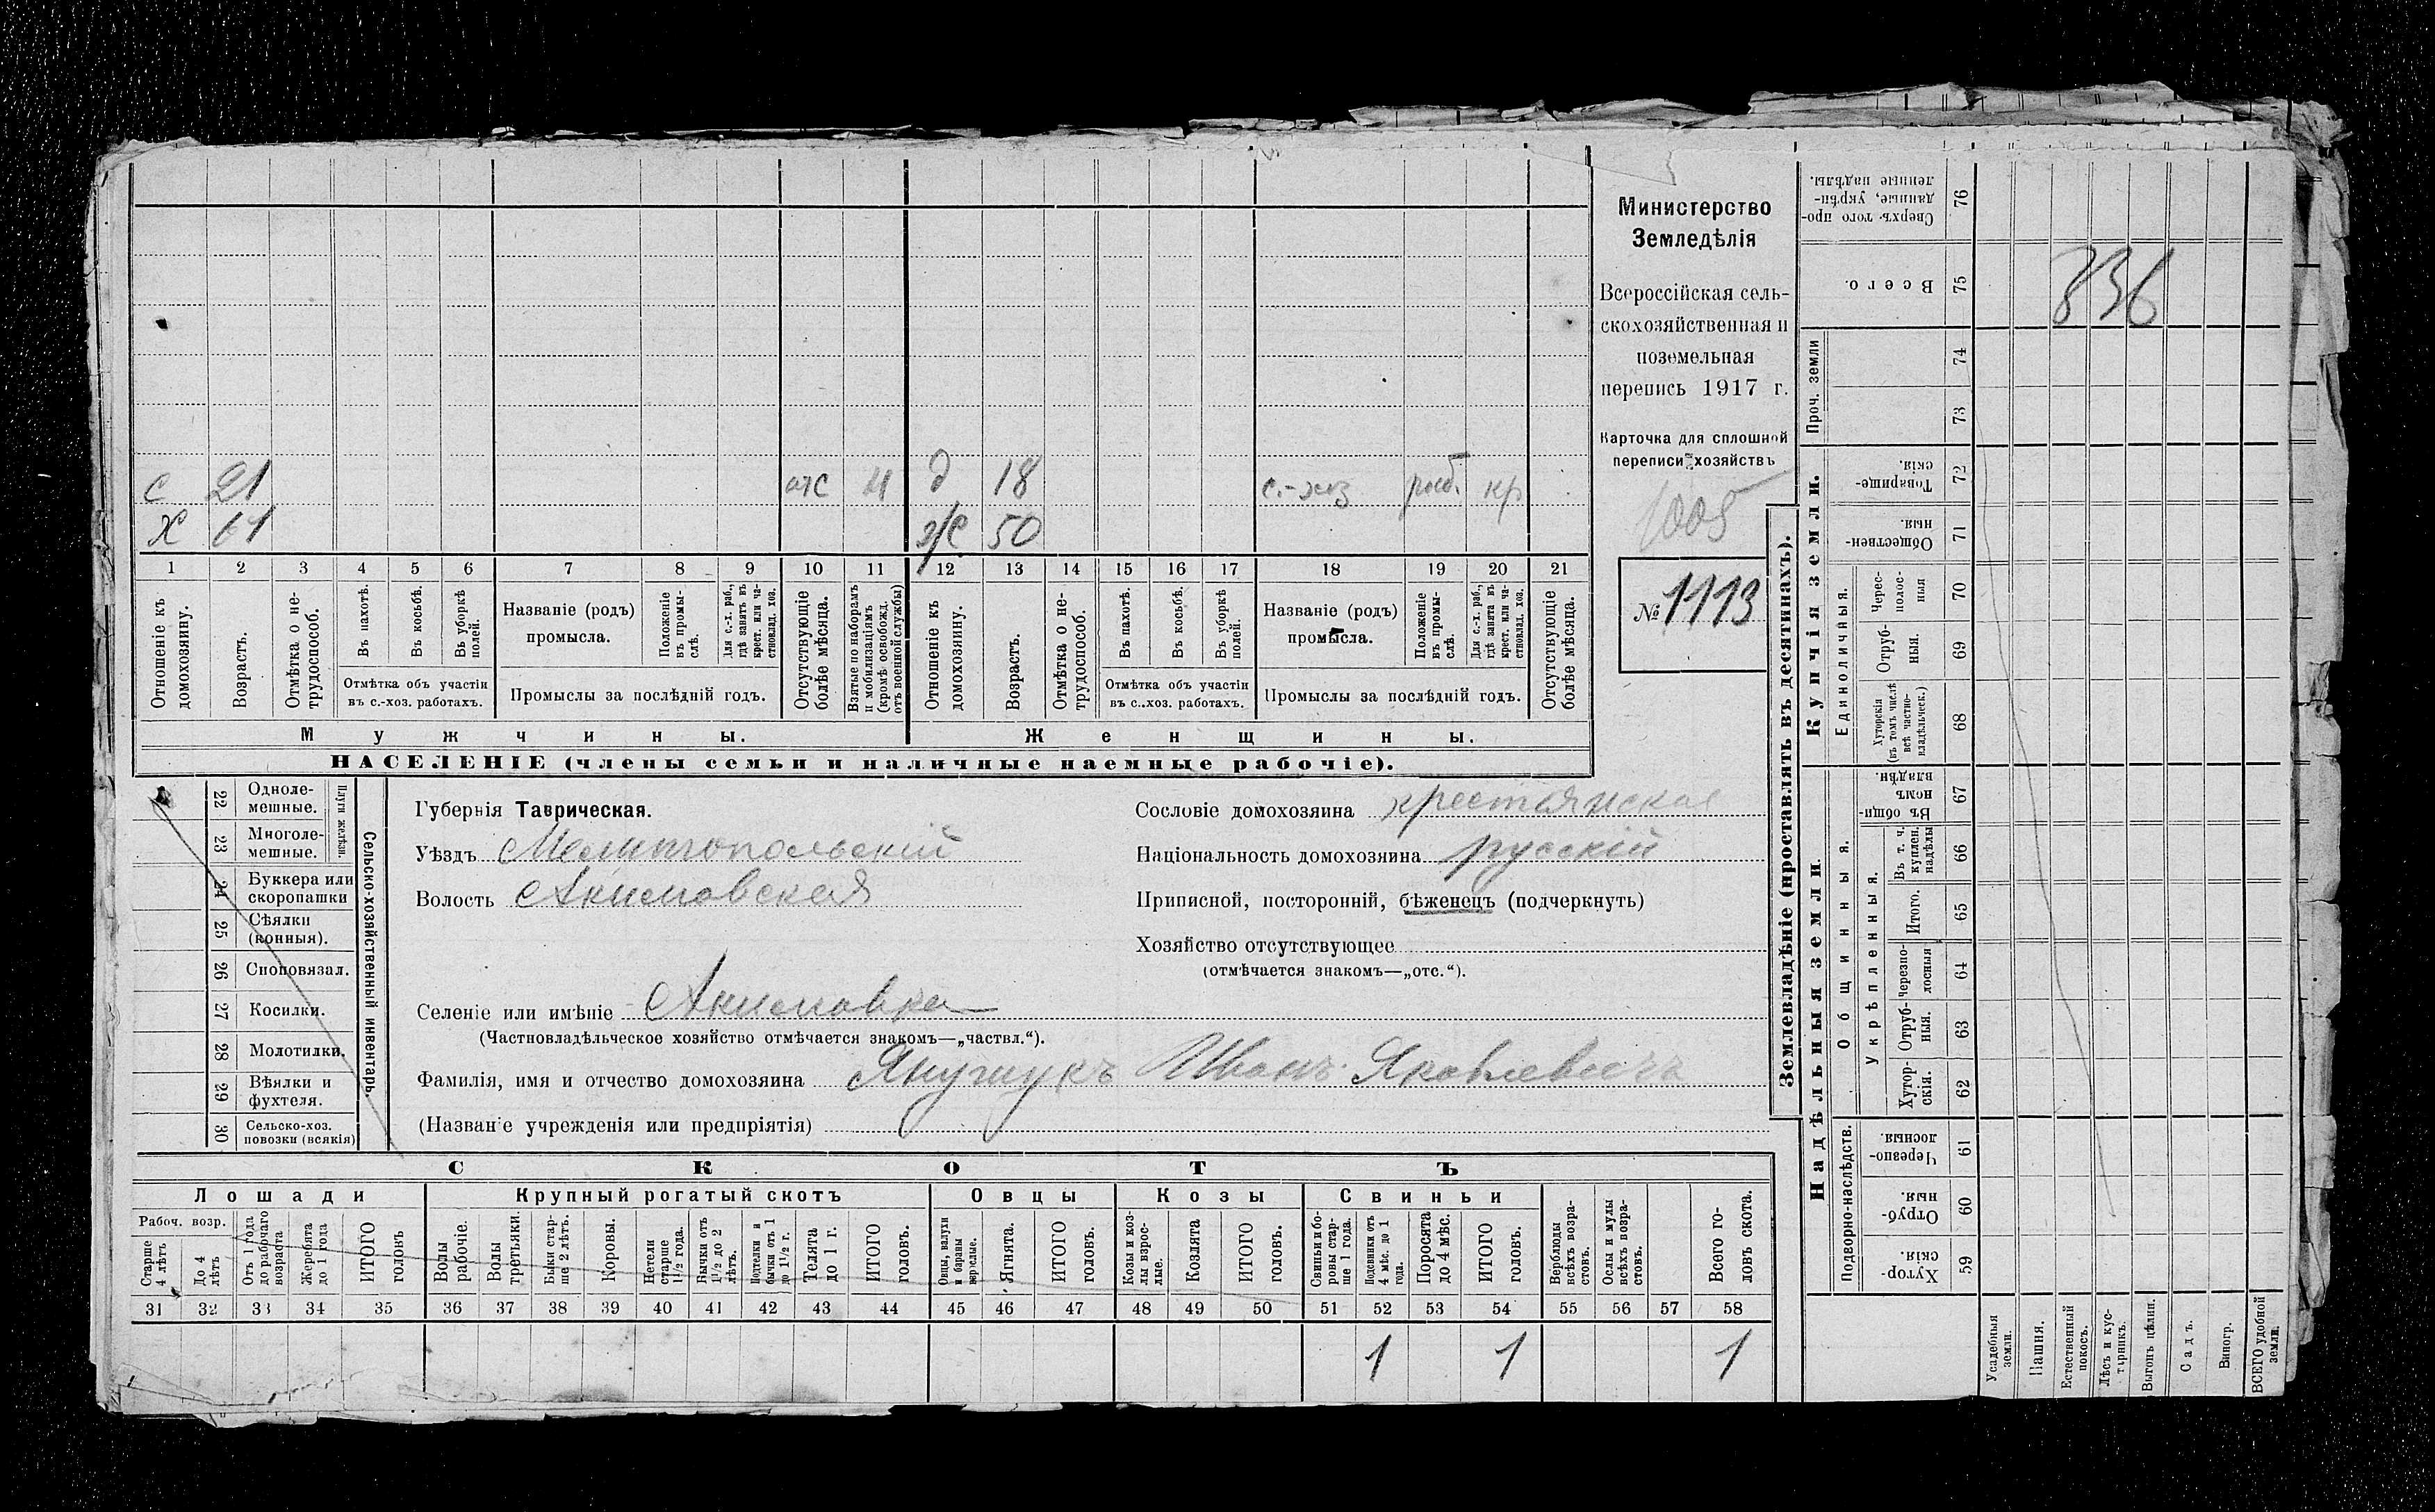 с 21 отс М д 18 с.-хоз раб. кр
х 61 ж 50
1 2 3 4 5 6 7 8 9 10 11 12 13 14 15 16 17 18 19 20 21
Отношеніе къ домохозяину.
Возрастъ.
Отмѣтка о не-
трудоспособ.
Въ пахотѣ.
Въ косьбѣ.
Въ уборкѣ
полей.
Отмѣтка объ участіи
въ с.-хоз. работахъ.
Названіе (родъ)
промысла.
Положеніе
въ промы-
слѣ.
Для с.-х. раб.,
гдѣ занятъ въ
крест. или ча-
стновлад. хоз.
Промыслы за послѣдній годъ.
Отсутствующіе
болѣе мѣсяца.
Взятые по наборамъ
и мобилизаціямъ
(кромѣ освобожд.
отъ военной службы)
Отношеніе къ
домохозяину.
Возрастъ.
Отмѣтка о не-
трудоспособ.
Въ пахотѣ.
Въ косьбѣ.
Въ уборкѣ
полей.
Отмѣтка объ участіи
въ с..хоз. работахъ.
Названіе (родъ)
промысла.
Положеніе
въ промы-
слѣ.
Для с.-х. раб.,
гдѣ занята въ
крест. или ча-
стновлад. хоз.
Промыслы за послѣдній годъ.
Отсутствующіе
болѣе мѣсяца.
Мужчины. Женщины.
НАСЕЛЕНІЕ (члены семьи и наличные наемные рабочіе).
Министерство
Земледѣлія
Всероссійская сель-
скохозяйственная и
поземельная
перепись 1917 г.
Карточка для сплошной
переписи хозяйствъ
1005
№ 1113
22 Одноле-
мешные.
23 Многоле-
мешные.
Плуги желѣзн.
24 Буккера или
скоропашки
25 Сѣялки
(конныя).
26 Сноповязал.
27 Косилки.
28 Молотилки.
29 Вѣялки и
фухтеля.
30 Сельско-хоз.
повозки (всякія)
Сельско-хозяйственный инвентарь.
Губернія Таврическая.
Уѣздъ Мелитопольскій
Волость Акимовская
Селеніе или имѣніе Акимовка
(Частновладѣльческое хозяйство отмѣчается знакомъ—„частвл.“).
Фамилія, имя и отчество домохозяина Янущукъ Иванъ Яковлевичъ
(Названіе учрежденія или предпріятія)
Сословіе домохозяина крестьянское
Національность домохозяина русскій
Приписной, посторонній, бѣженецъ (подчеркнуть)
Хозяйство отсутствующее
(отмѣчается знакомъ—„отс.“).
СКОТЪ
Лошади Крупный рогатый скотъ Овцы Козы Свиньи
Рабоч. возр.
Старше
4 лѣтъ
До 4
лѣтъ
Отъ 1 года
до рабочаго
возраста
Жеребята
до 1 года
ИТОГО
головъ
Волы
рабочіе.
Волы
третьяки.
Быки стар-
ше 2 лѣтъ.
Коровы.
Нетели
старше
1½ года.
Бычки отъ
1½ до 2
лѣтъ.
Подтелки и
бычки отъ 1
до 1½ г.
Телята
до 1 г.
ИТОГО
головъ.
Овцы, валухи
и бараны
взрослые.
Ягнята.
ИТОГО
головъ.
Козы и коз-
лы взрос-
лые.
Козлята
ИТОГО
головъ.
Свиньи и бо-
ровы стар-
ше 1 года.
Подсвинки отъ
4 мѣс. до 1
года.
Поросята
до 4 мѣс.
ИТОГО
головъ.
Верблюды
всѣхъ возра-
стовъ.
Ослы и мулы
всѣхъ возра-
стовъ.
Всего го-
ловъ скота.
31 32 33 34 35 36 37 38 39 40 41 42 43 44 45 46 47 48 49 50 51 52 53 54 55 56 57 58
1 1 1
Землевладѣніе (проставлять въ десятинахъ).
Купчія земли.
Надѣльныя земли.
Сверхъ того про-
данные, укрѣп-
ленные надѣлы. 76
Всего. 75
836
Проч. земли 74
73
Товарище-
скія. 72
Обществен-
ныя. 71
Единоличныя.
Черес-
полос-
ныя 70
Отруб-
ныя. 69
Хуторскія
(въ томъ числѣ
всѣ частно-
владѣльческ.) 68
Общинныя.
Въ общи-
номъ
владѣн. 67
Укрѣпленныя.
Въ т. ч.
куплен.
надѣлы 66
Итого. 65
Черезпо-
лосныя 64
Отруб-
ныя. 63
Хутор-
скія. 62
Подворно-наслѣдств.
Черезпо-
лосныя. 61
Отруб-
ныя. 60
Хутор-
скія. 59
Усадебныя
земли.
Пашня.
Естественный
покосъ.
Лѣсъ и кус-
тарникъ.
Выгонъ цѣлин.
Садъ.
Виногр.
ВСЕГО удобной
земли.